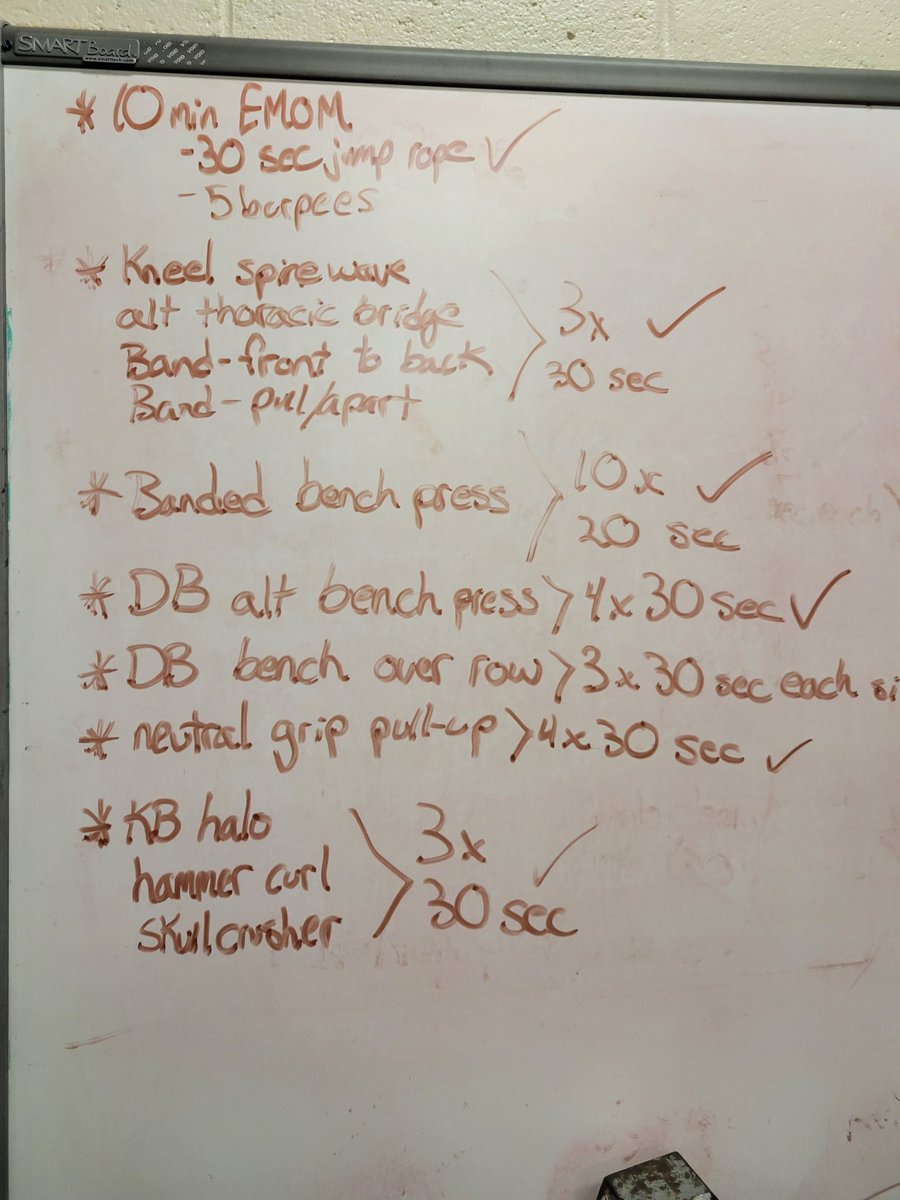 SMART Board
www.smarttech.com
* 10 min EMOM
-30 sec jump rope ✓
- 5 burpees
* Kneel spine wave
alt thoracic bridge
Band-front to back
Band-pull/apart
3x ✓
30 sec
* Banded bench press
10x ✓
20 sec
* DB alt bench press > 4x30 sec ✓
* DB bench over row > 3x30 sec each si
* neutral grip pull-up > 4x30 sec ✓
* KB halo
hammer curl
skullcrusher
3x
30 sec ✓